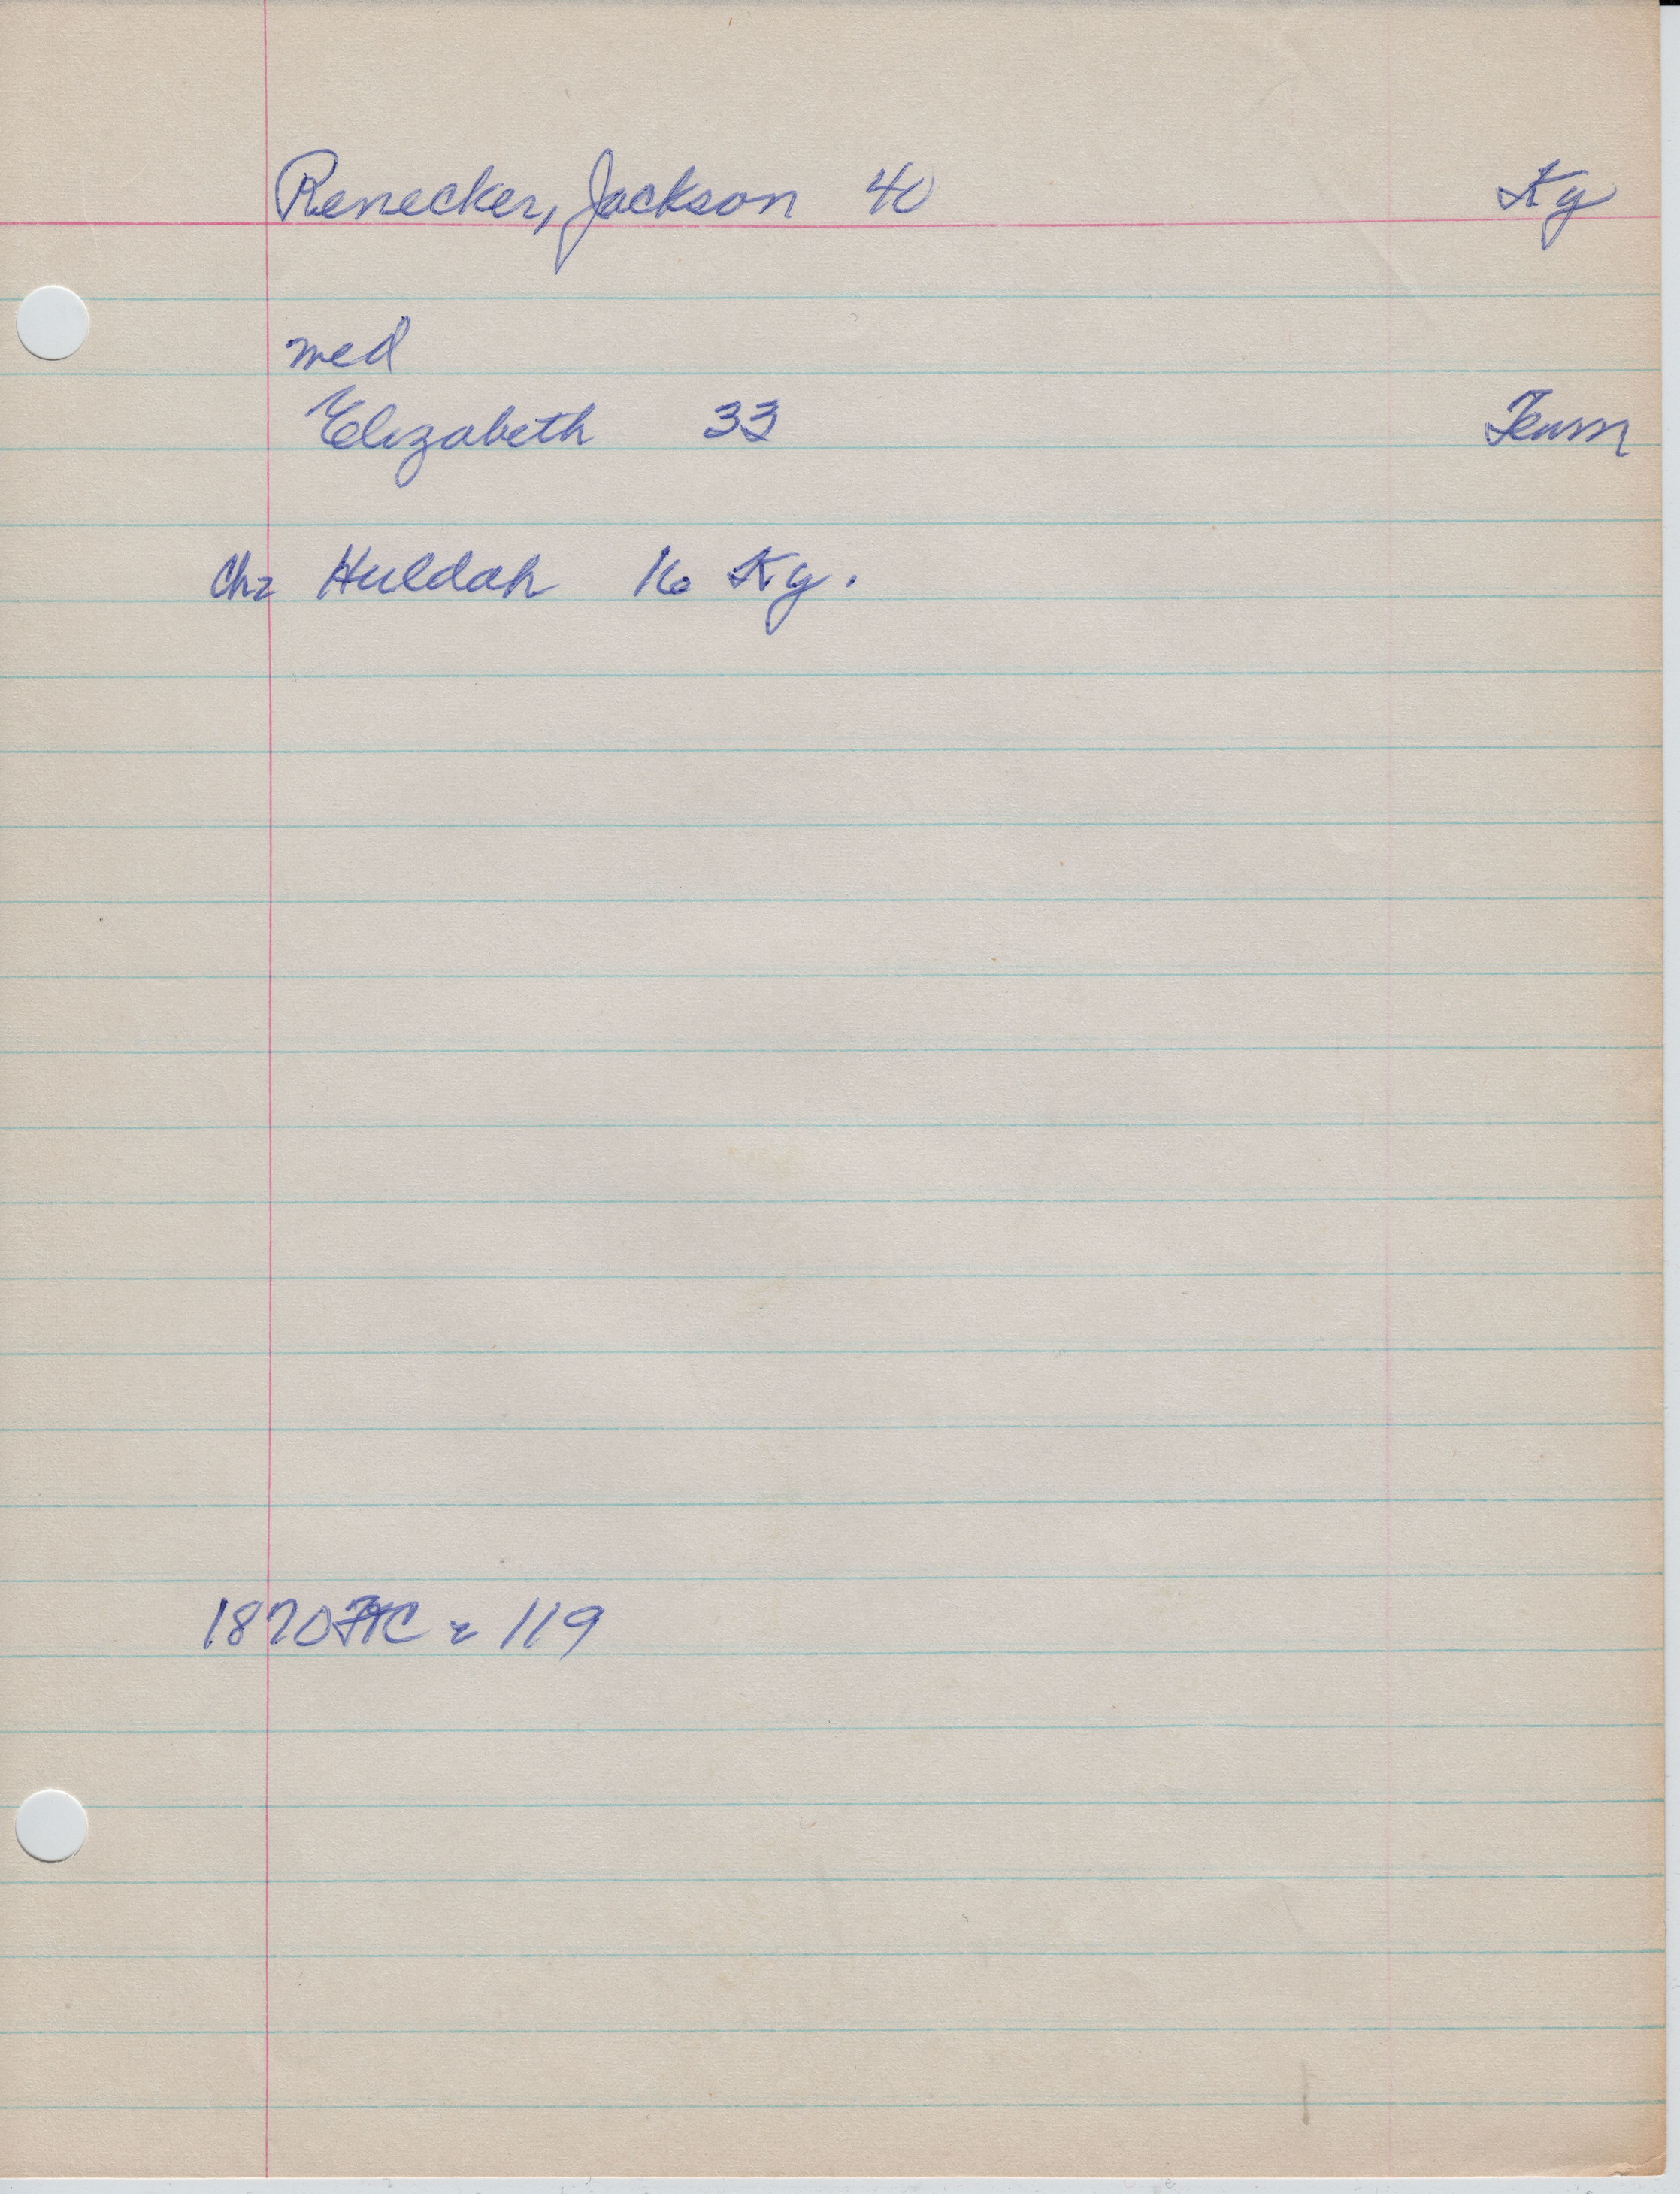 Renecker, Jackson 40 Ky
med
Elizabeth 33 Tenn
Ch2 Huldah 16 Ky.
1870 FTC 119